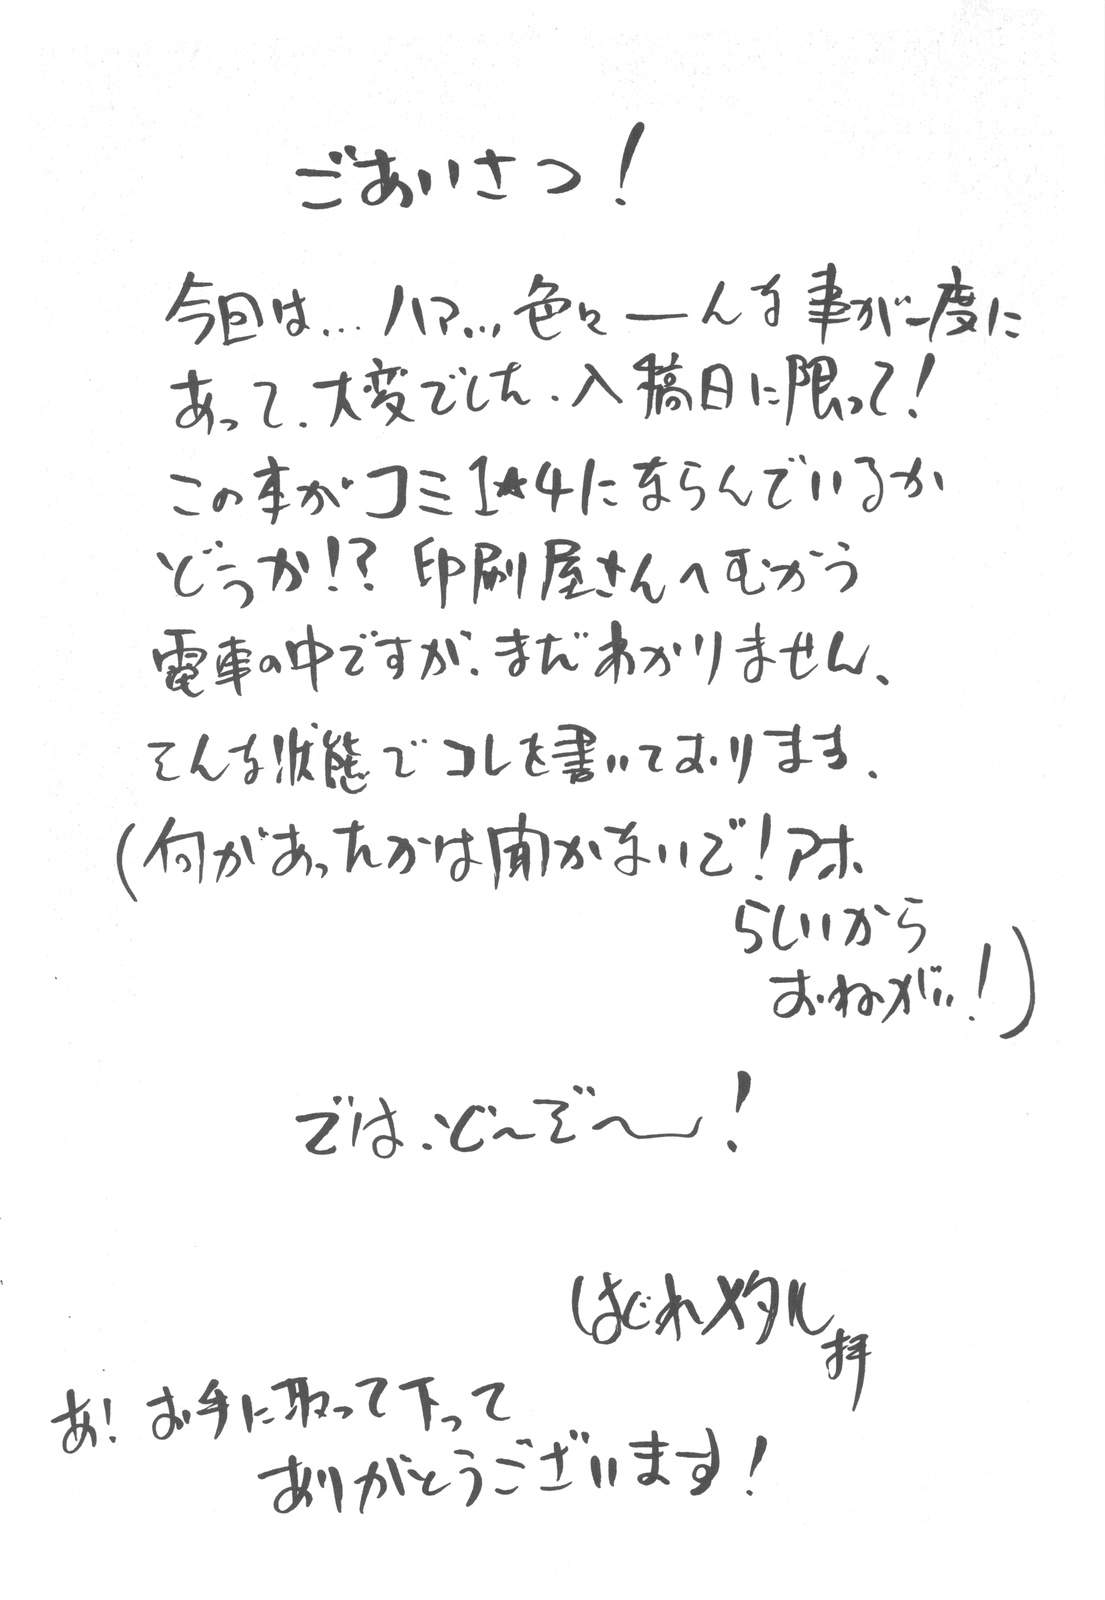 ごあいさつ!
今回は…ハァ…色々―んな事が一度に
あって、大変でした、入稿日に限って!
この本がコミ1☆4にならんでいるか
どうか!?印刷屋さんへむかう
電車の中ですが、まだわかりません、
そんな状態でコレを書いております、
(何があったかは聞かないで!アホ
らしいから
おねがい!)
では、ど〜ぞ〜!
はぐれメタル拝
あ!お手に取って下って
ありがとうございます!